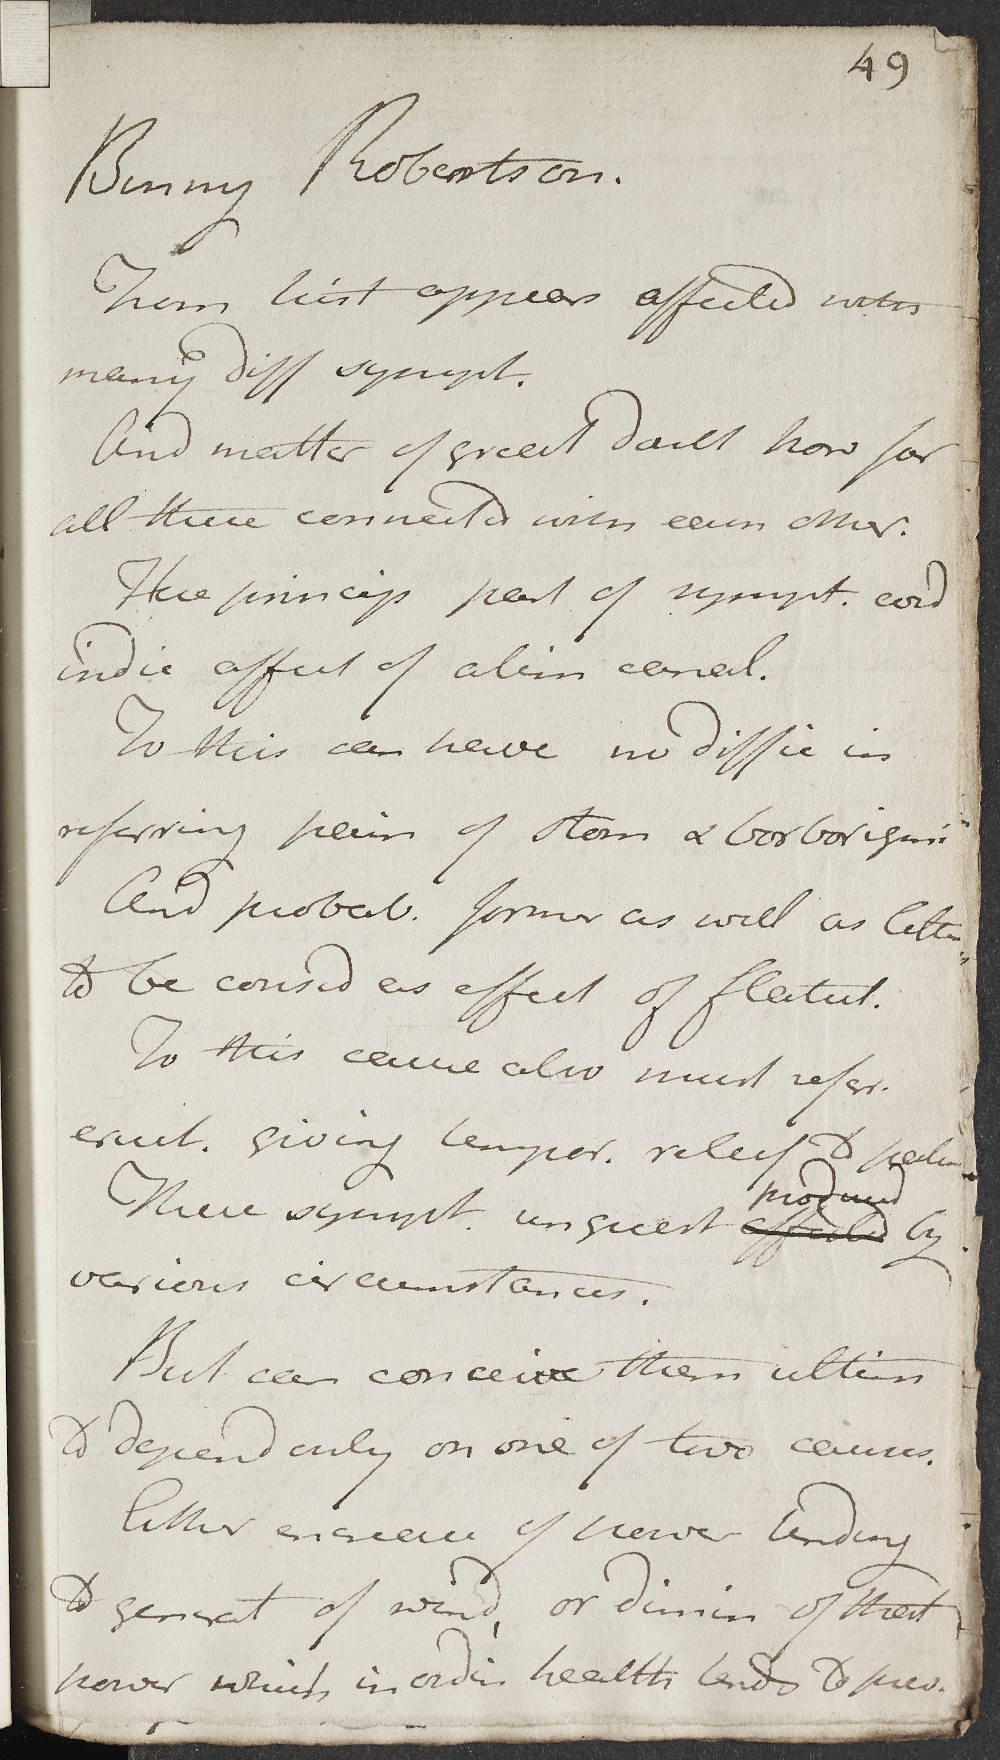 49
Binny Robertson.
From hist appears affected with
many diff sympt.
And matter of great doubt how far
all these connected with each other.
Here princip part of sympt.
indic affect of alim canal.
To this can have no diffic in
referring pain of stom & borborigmi
And probab. former as well as latter
to be consid as effect of flatul.
To this cause also must refer.
eruct. giving tempor. relief to
These sympt. unquest affected produced by
various circumstances.
But can conceive them ultim
to depend only on one of two causes.
Either increase of power tending
to generat of wind, or dimin of that
power which in ordin health tends to prev.